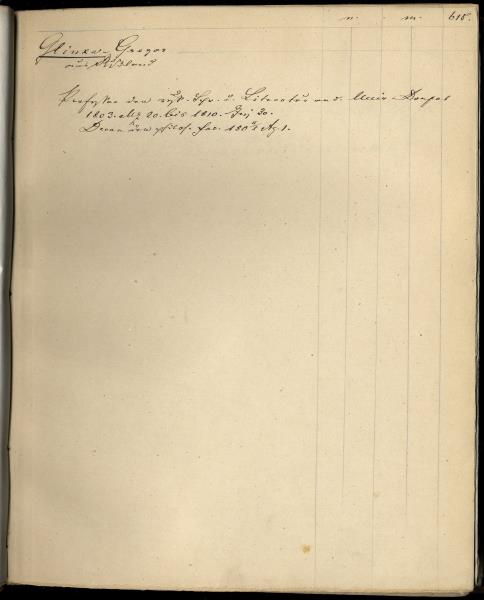 n. m. 618.
Glinka, Gregor
aus Rußland
Professor der russ. Spr. u. Literatur an d. Univ. Dorpat
1803. Mz 20. bis 1810. 30.
Decan der philos. Fac. Ag 1.